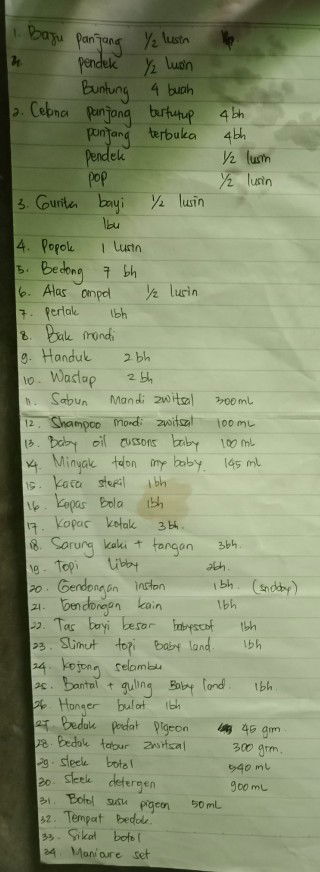 1. Baju panjang 1/2 lusin
pendek 1/2 lusin
Buntung 4 buah
2. Celana panjang tertutup 4 bh
panjang terbuka 4bh
pendek 1/2 lusin
pop 1/2 lusin
3. Gurita bayi 1/2 lusin
Ibu
4. Popok 1 lusin
5. Bedong 7 bh
6. Alas ompol 1/2 lusin
7. perlak 1bh
8. Bak mandi
9. Handuk 2bh
10. Waslap 2 bh
11. Sabun Mandi zwitsal 300mL
12. Shampoo mandi zwitsal 100 mL
13. Baby oil cussons baby 100 mL
14. Minyak telon my baby 145 ml
15. Kasa steril 1bh
16. Kapas Bola 1bh
17. Kapas kotak 3bh.
18. Sarung kaki + tangan 3bh.
19. Topi Libby 2bh.
20. Gendongan instan 1bh. (snobby)
21. Gendongan kain 1bh
22. Tas bayi besar babyscot 1bh
23. Slimut topi Baby land. 1bh
24. Kojong selambu
25. Bantal + guling Baby land. 1bh.
26. Hanger bulat 1bh
27. Bedak padat Pigeon 45 grm.
28. Bedak tabur zwitsal 300 grm.
29. sleek botol 540 mL
30. sleek detergen 900mL
31. Botol susu pigeon 50mL
32. Tempat bedak.
33. Sikat botol
34. Maniaure set